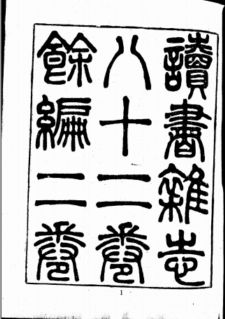 讀書雜志
八十二卷
餘編二卷
1